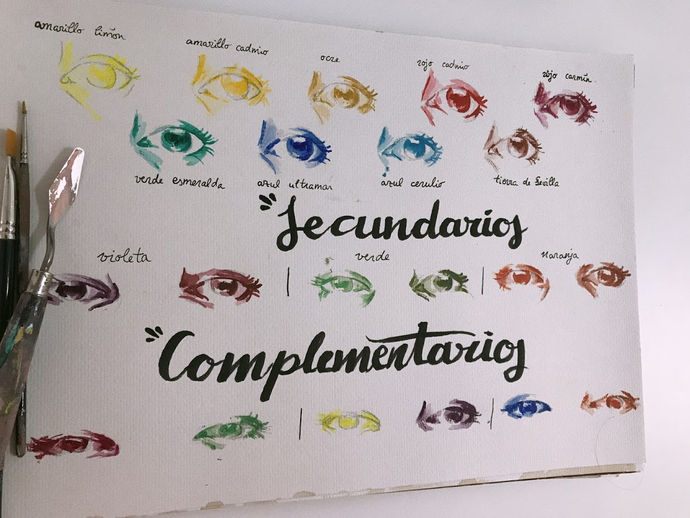 amarillo limón
amarillo cadmio
ocre
rojo cadmio
rojo carmín
verde esmeralda
azul ultramar
azul cerulio
tierra de Sevilla
Secundarios
violeta
verde
naranja
Complementarios